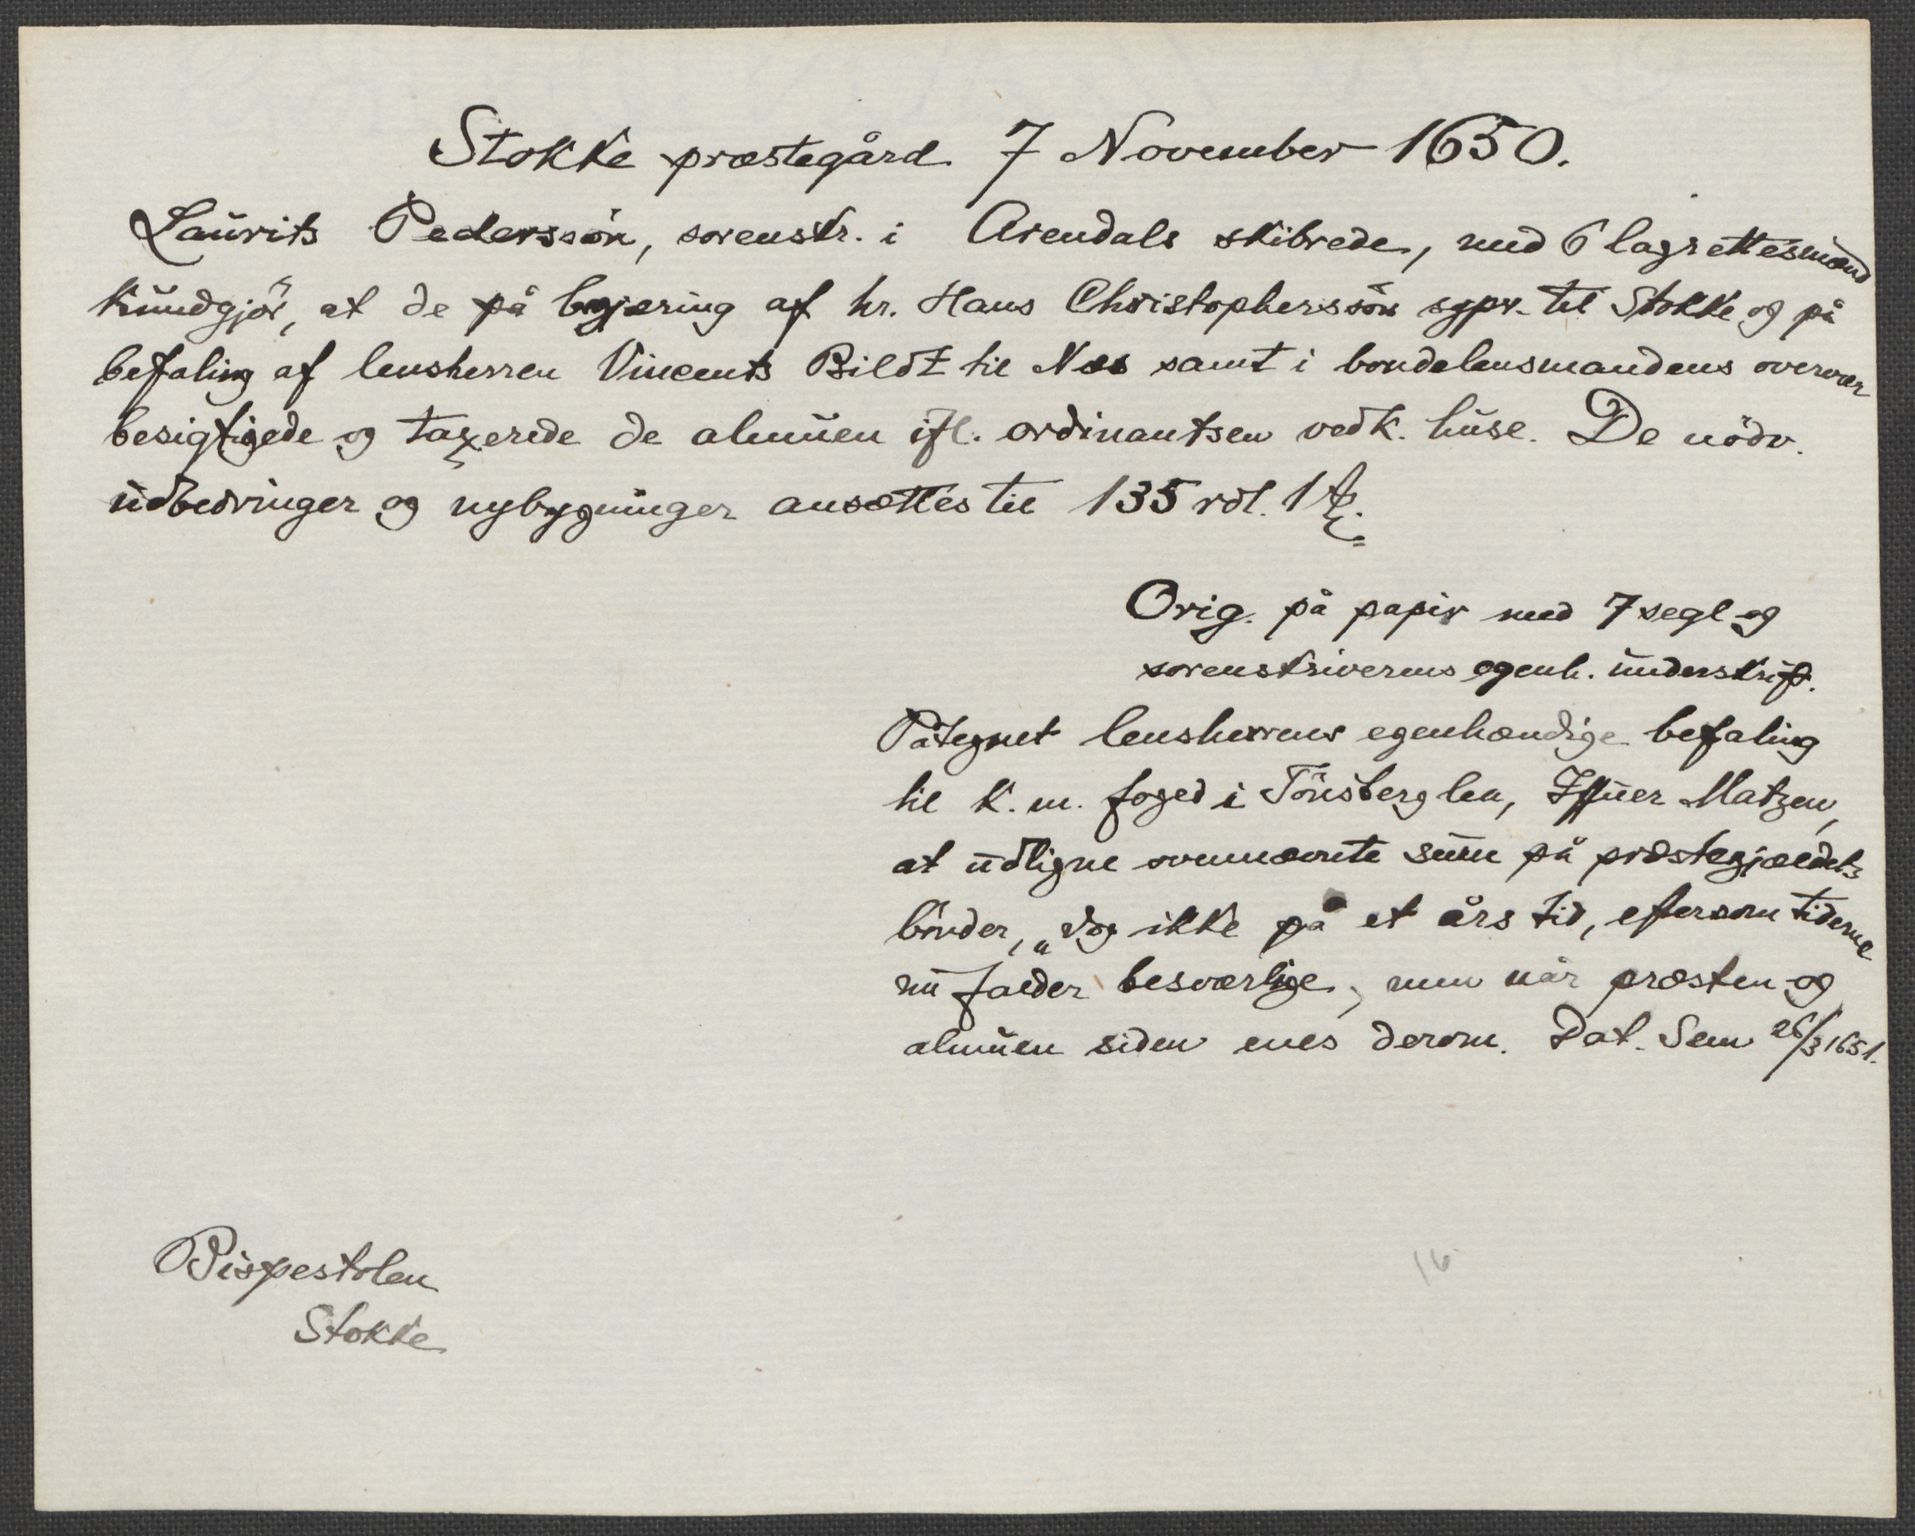 Stokke præstegård 7 November 1650.
Laurits Pederssön, sorenskr. i Arendals skibrede, med 6 lagrettesmænd
kundgjör, at de på begjæring af hr. Hans Christopherssön sgpr. til Stokke og på
befaling af lensherren Vincents Bildt til Næs samt i bondelensmandens overvær
besigtigede og taxerede de almuen ifl. ordinantsen vedk. huse. De nödv.
udbedringer og nybygninger ansættes til 135 rdl. 1
Orig. på papir med 7 segl og
sorenskriverens egenh. underskrift.
Påtegnet lensherrens egenhændige befaling
til k. m. foged i Tönsberg len, Iffuer Matzen,
at udligne ovennævnte sum på præstegjældets
bönder, „dog ikke på et års tid, eftersom tiderne
nu falder besværlige, men når præsten og
almuen siden enes derom. Dat. Sem 26/3 1651.
Bispestolen
Stokke
16